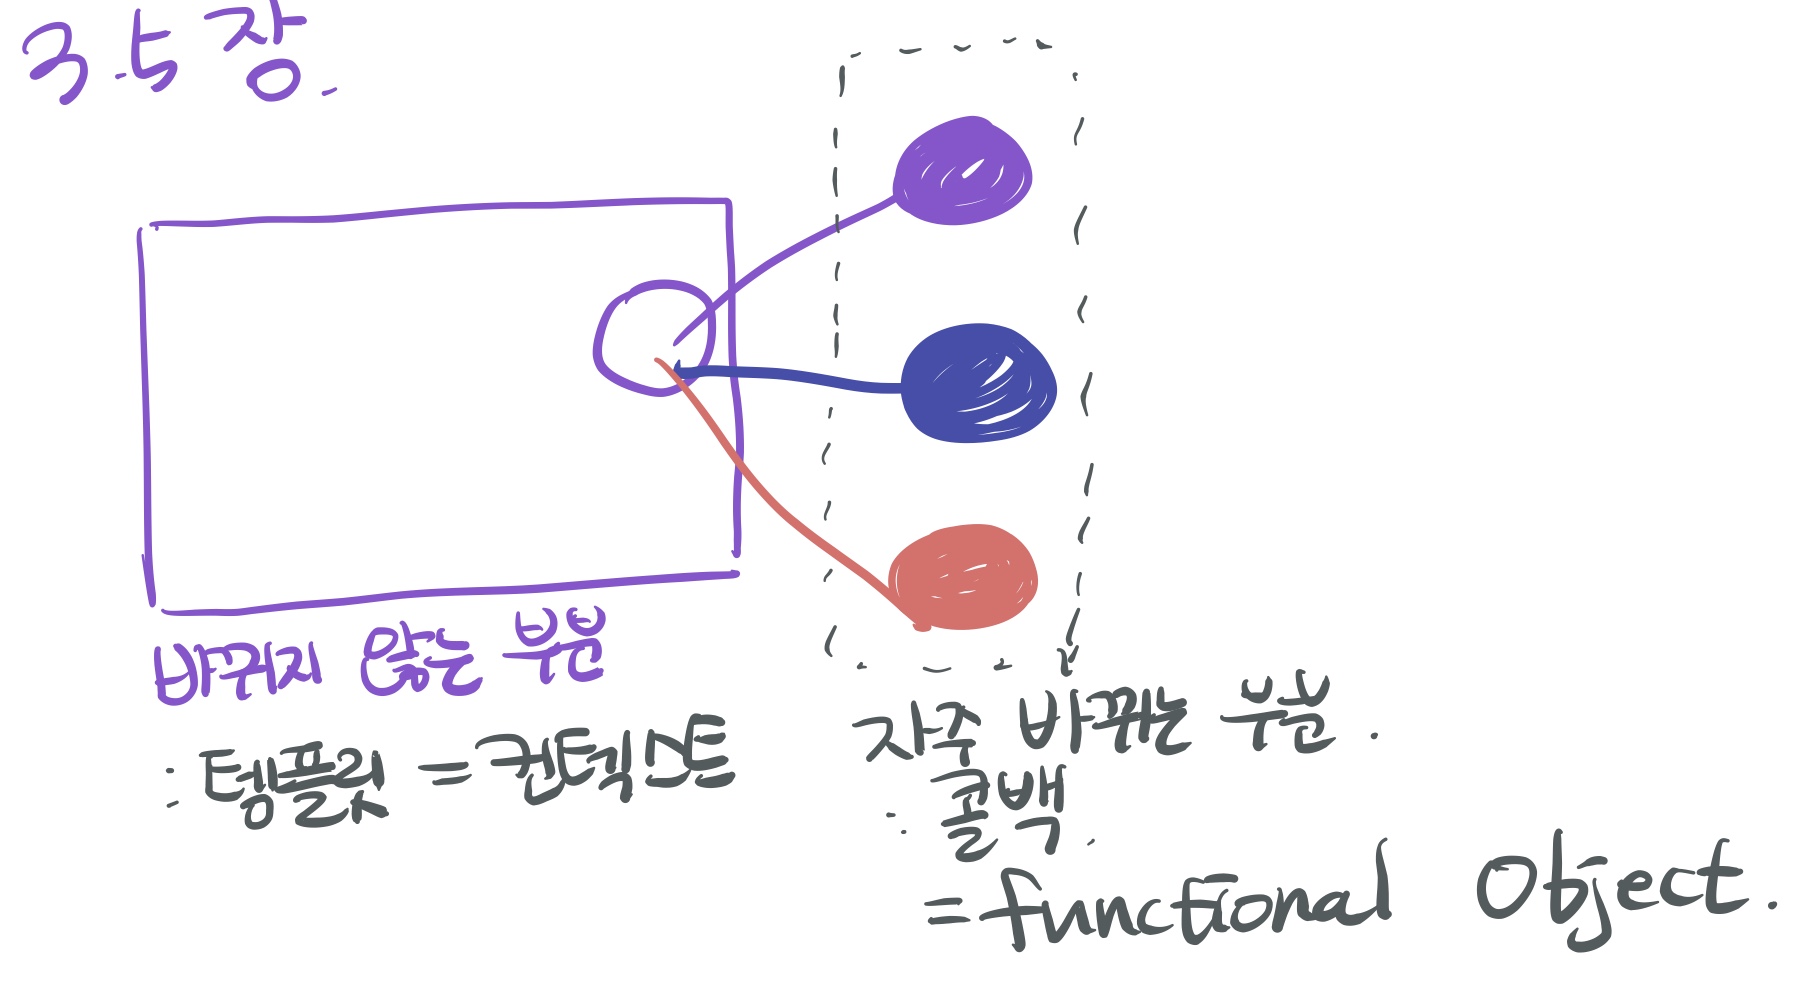 3.5장.
바뀌지 않는 부분
: 템플릿 = 컨텍스트
자주 바뀌는 부분.
: 콜백.
= functional Object.